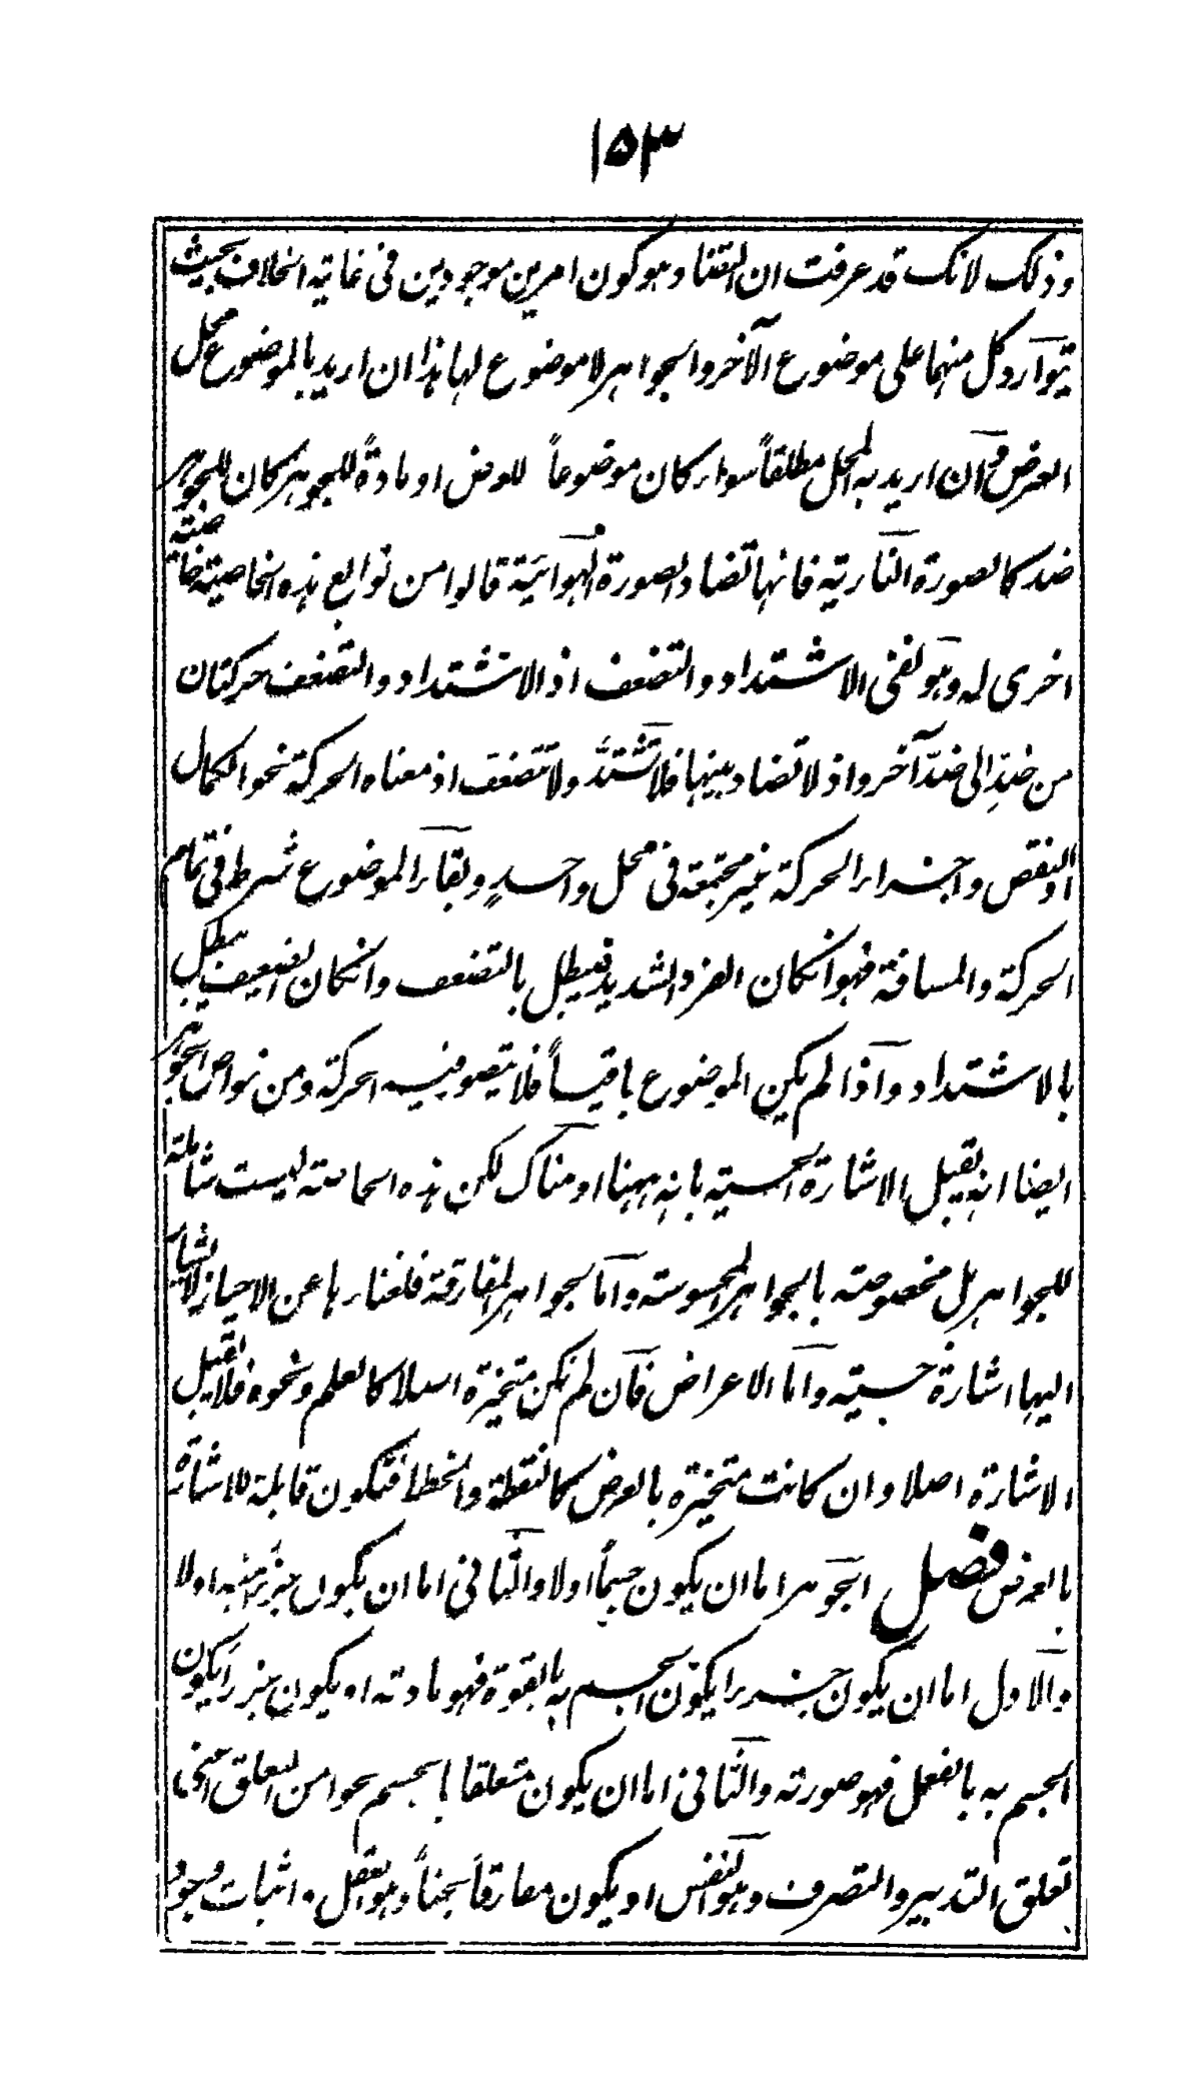 ۱۵۳
وذلک لانک قد عرفت ان التضاد هو کون امرین موجودین فی غایة الخلاف بحیث
یتوارد کل منهما علی موضوع الآخر والجواهر لا موضوع لها هذا ان ارید بالموضوع محل
العرض وان ارید به المحل مطلقاً سواء کان موضوعاً للعرض او مادةً للجوهر کان للجوهر
ضد کالصورة الناریة فانها تضاد الصورة الهوائیة قالوا من توابع هذه الخاصیة خاصیة
اخری له وهو نفی الاشتداد والتضعف اذ الاشتداد والتضعف حرکتان
من ضدٍ الی ضدّ آخر واذ لا تضاد بینها فلا تشتدُّ ولا تتضعف اذ معناه الحرکة نحو الکمال
او النقص واجزاء الحرکة غیر مجتمعة فی محل واحدٍ وبقاء الموضوع شرط فی تمام
الحرکة والمسافة فهو انکان الفرد الشدید فیبطل بالتضعف وانکان الضعیف یبطل
بالاشتداد واذا لم یکن الموضوع باقیاً فلا یتصور فیه الحرکة ومن خواص الجوهر
ایضا انه یقبل الاشارة الحسیة بانه ههنا او هناک لکن هذه الخاصة لیست شاملة
للجواهر بل مخصوصة بالجواهر المحسوسة واما الجواهر المفارقة فلغنارها عن الاحیاز لا یشار
الیها اشارة حسیة واما الاعراض فان لم تکن متحیزة اصلا کالعلم ونحوه فلا تقبل
الاشارة اصلا وان کانت متحیزة بالعرض کالنقطة والخط فتکون قابلة للاشارة
بالعرض فصل الجوهر اما ان یکون جسماً اولا والثانی اما ان یکون جزء منه اولا
والاول اما ان یکون جزءا یکون الجسم به بالقوة فهو مادته او یکون جزءا یکون
الجسم به بالفعل فهو صورته والثانی اما ان یکون متعلقا بالجسم نحوا من التعلق اعنی
تعلق التدبیر والتصرف وهو النفس او یکون مفارقاً بحتاً وهو العقل۰ اثبات وجود